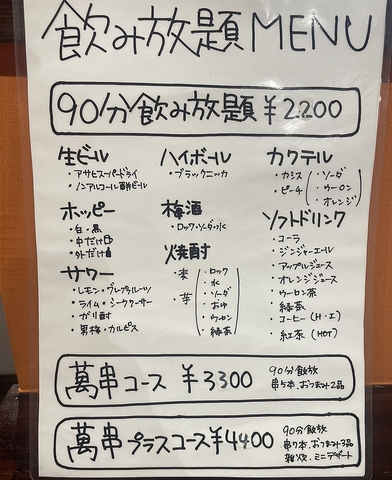 飲み放題MENU
90分飲み放題 ¥2200
生ビール
・アサヒスーパードライ
・ノンアルコールビール
ホッピー
・白・黒
・中だけ
・外だけ
サワー
・レモン・グレープフルーツ
・ライム・シークワーサー
・ガリ酎
・男梅・カルピス
ハイボール
・ブラックニッカ
梅酒
・ロック・ソーダ・水
焼酎
・麦
・芋
・ロック
・水
・ソーダ
・お湯
・ウーロン
・緑茶
カクテル
・カシス
・ピーチ
・ソーダ
・ウーロン
・オレンジ
ソフトドリンク
・コーラ
・ジンジャーエール
・アップルジュース
・オレンジジュース
・ウーロン茶
・緑茶
・コーヒー(H・I)
・紅茶(HOT)
萬串コース ¥3300
90分飲放
串5本、おつまみ2品
萬串プラスコース¥4400
90分飲放
串7本、おつまみ3品
雑炊、ミニデザート